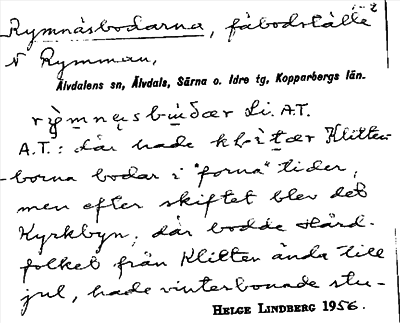 Rymnäsbodarna, fäbodställe
N Rymman,
Älvdalens sn, Älvdals, Särna o. Idre tg, Kopparbergs län.
Li. A.T.
A.T.: där hade Klitten-
borna bodar i "forna" tider,
men efter skiftet blev det
Kyrkbyn; där bodde Härd-
folket från Klitten ända till
jul, hade vinterbonade stu-
HELGE LINDBERG 1956.